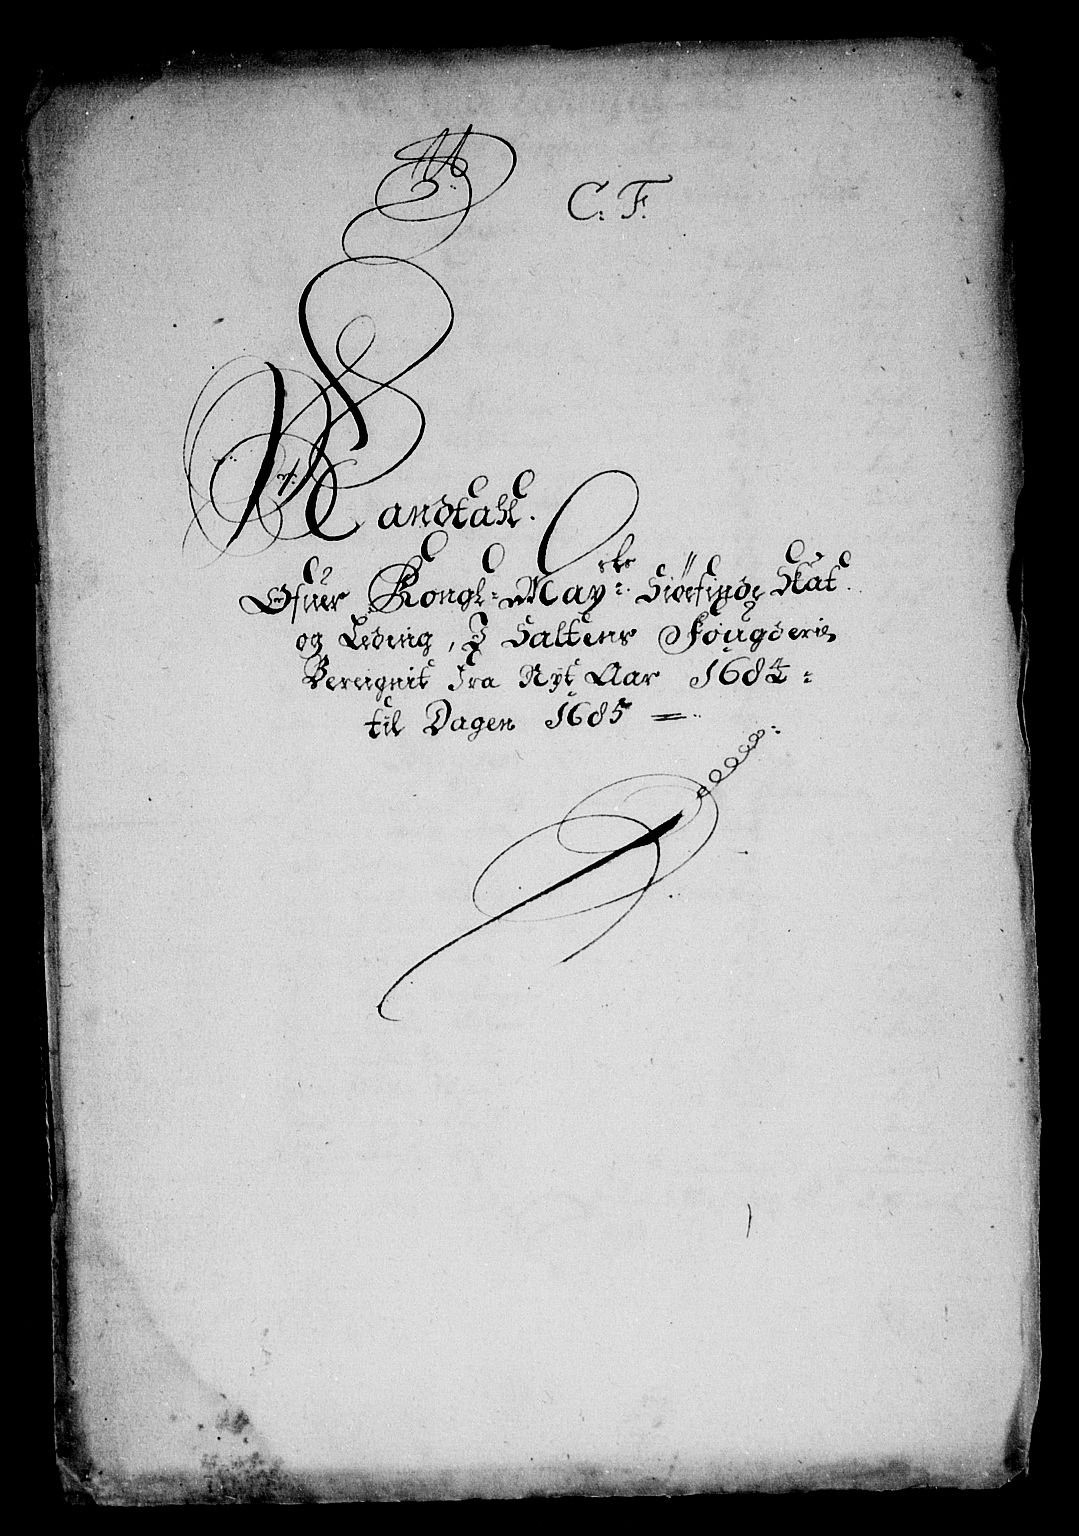 C: F:
Mandtahl.
Ofuer Kongl: May:ts Siøefinde Skat
og Leding, I Saltens Fougderie
Bereignit fra Nyt Aar 1684:
til Dagen 1685 =